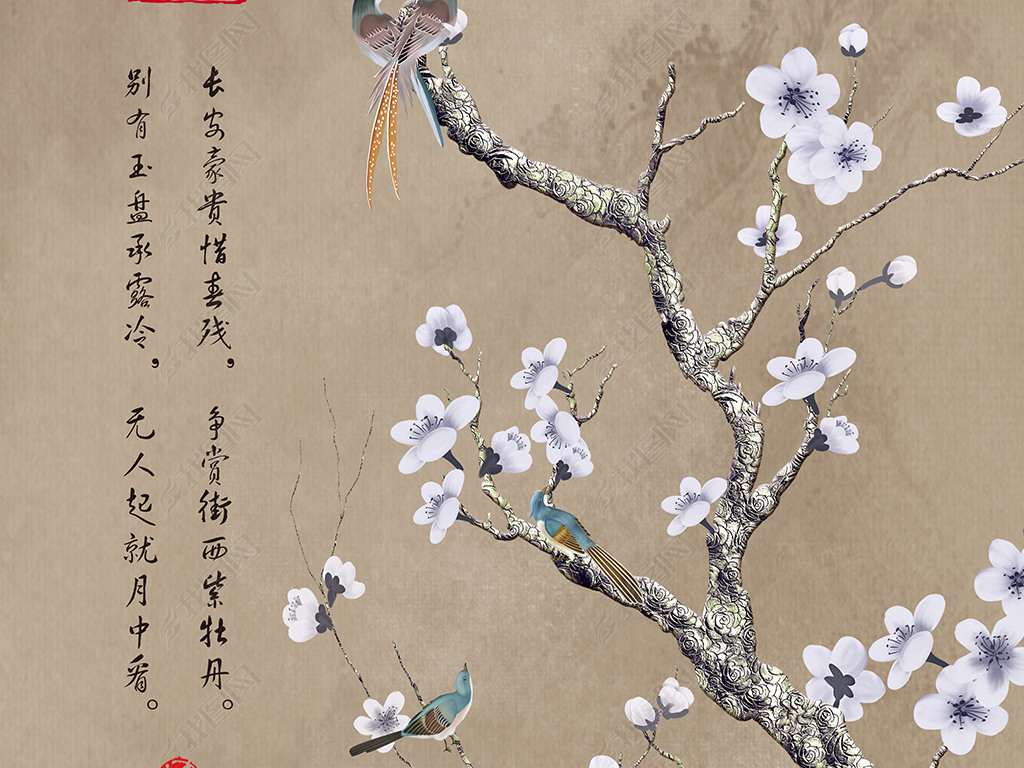 长安豪贵惜春残，争赏街西紫牡丹。
别有玉盘承露冷，无人起就月中看。